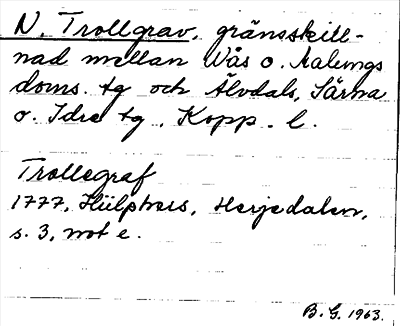 N. Trollgrav, gränsskill-
nad mellan Wås o. Malungs
doms. tg och Älvdals, Särna
o. Idre tg, Kopp. l.
Trollegraf
1777, Hülphers, Herjedalen,
s. 3, not e.
B. G. 1963.